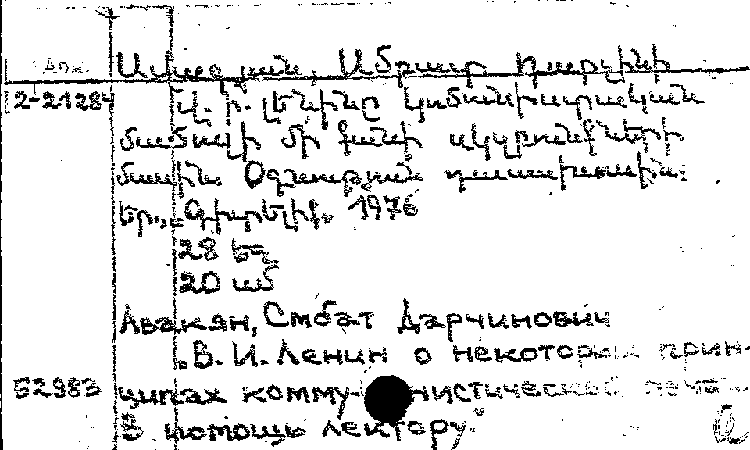 Ավագյան, Սմբատ Դարչինի
2-21284 Վ. Ի. Լենինը կոմունիստական
մամուլի մի քանի սկզբունքների
մասին: Օգնություն դասախոսին:
Եր., „Գիտելիք„ 1976
28 եջ
20 սմ
Авакян, Смбат Дарчинович
„В. И. Ленин о некоторых прин-
52983 ципах коммунистической печа
В помощь лектору."